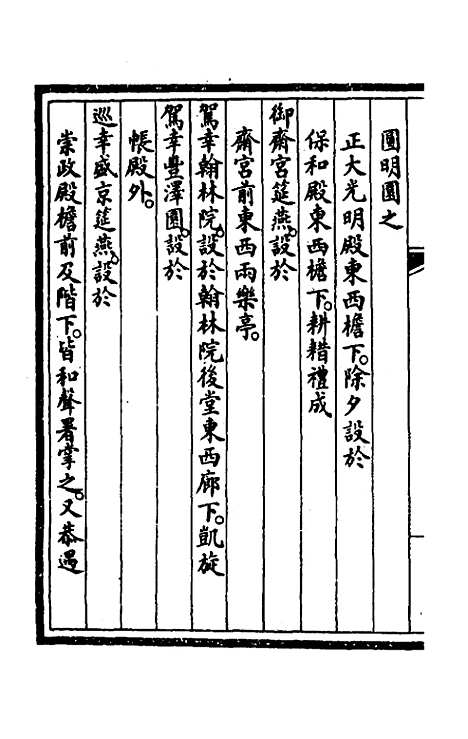 圓明園之
正大光明殿東西檐下。除夕設於
保和殿東西檐下。耕耤禮成
御齋宮筵燕。設於
齋宮前東西兩樂亭。
駕幸翰林院。設於翰林院後堂東西廊下。凱旋
駕幸豐澤園。設於
帳殿外。
巡幸盛京筵燕。設於
崇政殿檐前及階下。皆和聲署掌之。又恭遇